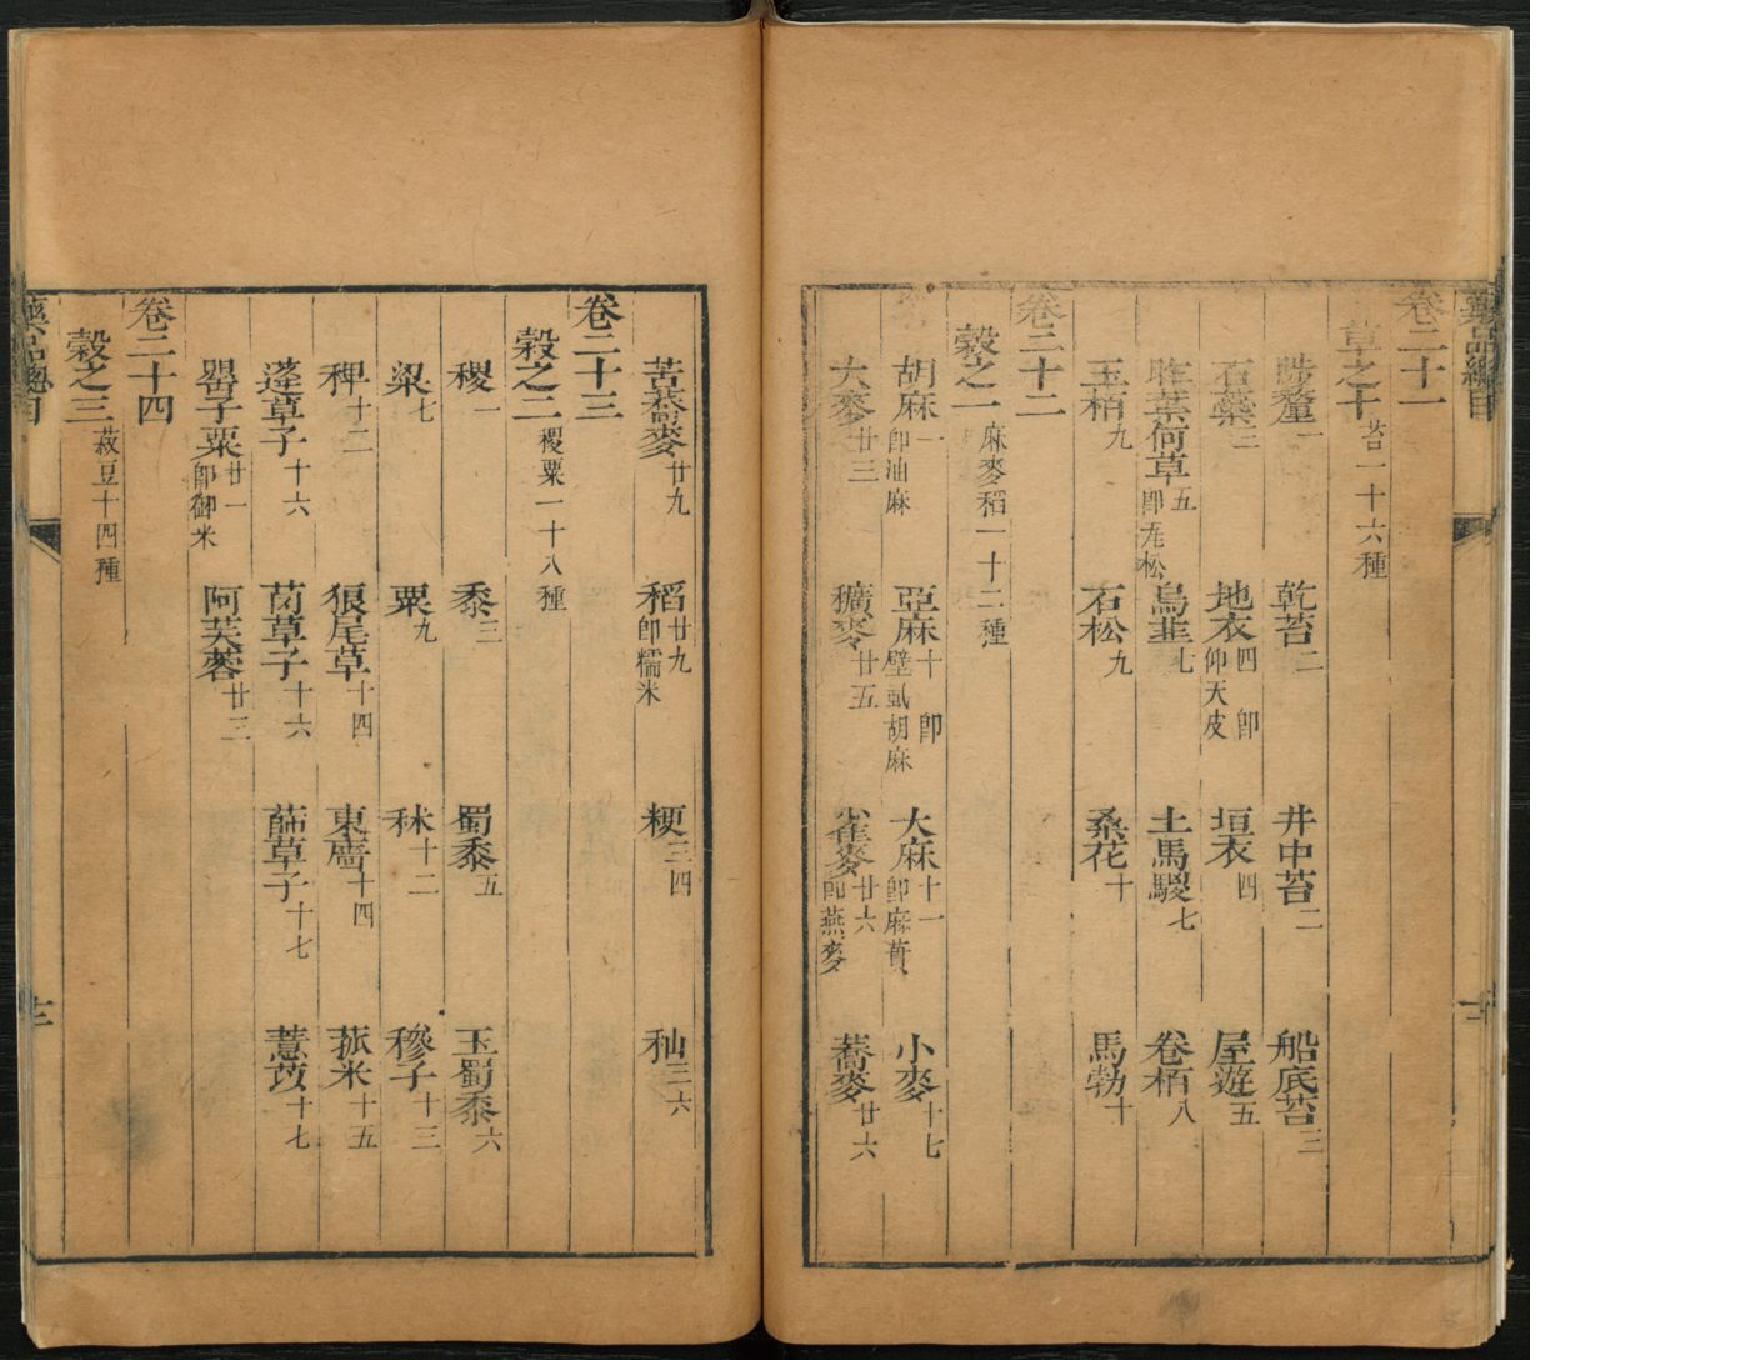 藥品總目
卷二十一
草之十 苔一十六種
陟釐 一 乾苔 二 井中苔 二 船底苔 三
石蘂 三 地衣 四 即仰天皮 垣衣 四 屋遊 五
昨葉何草 五 即瓦松 烏韭 七 土馬騣 七 卷栢 八
玉栢 九 石松 九 桑花 十 馬勃 十
卷二十二
穀之一 麻麥稻一十二種
胡麻 一 即油麻 亞麻 十 即壁虱胡麻 大麻 十一 即麻蕡 小麥 十七
大麥 廿三 穬麥 廿五 雀麥 廿六 即燕麥 蕎麥 廿六
苦蕎麥 廿九 稻 廿九 即糯米 粳 三四 秈 三六
卷二十三
穀之二 稷粟一十八種
稷 一 黍 三 蜀黍 五 玉蜀黍 六
粱 七 粟 九 秫 十二 穇子 十三
稗 十二 狼尾草 十四 東廧 十四 菰米 十五
蓬草子 十六 䓑草子 十六 蒒草子 十七 薏苡 十七
罌子粟 廿一 即御米 阿芙蓉 廿三
卷二十四
穀之三 菽豆十四種
藥品總目